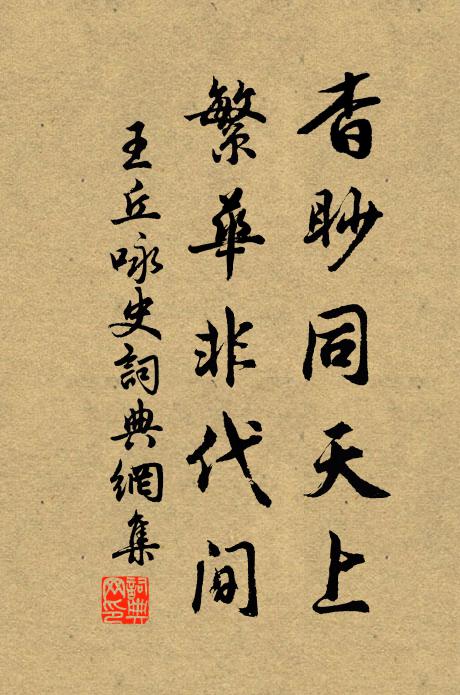 杳眇同天上
繁華非代間
王丘咏史詞典網集
詞典网印